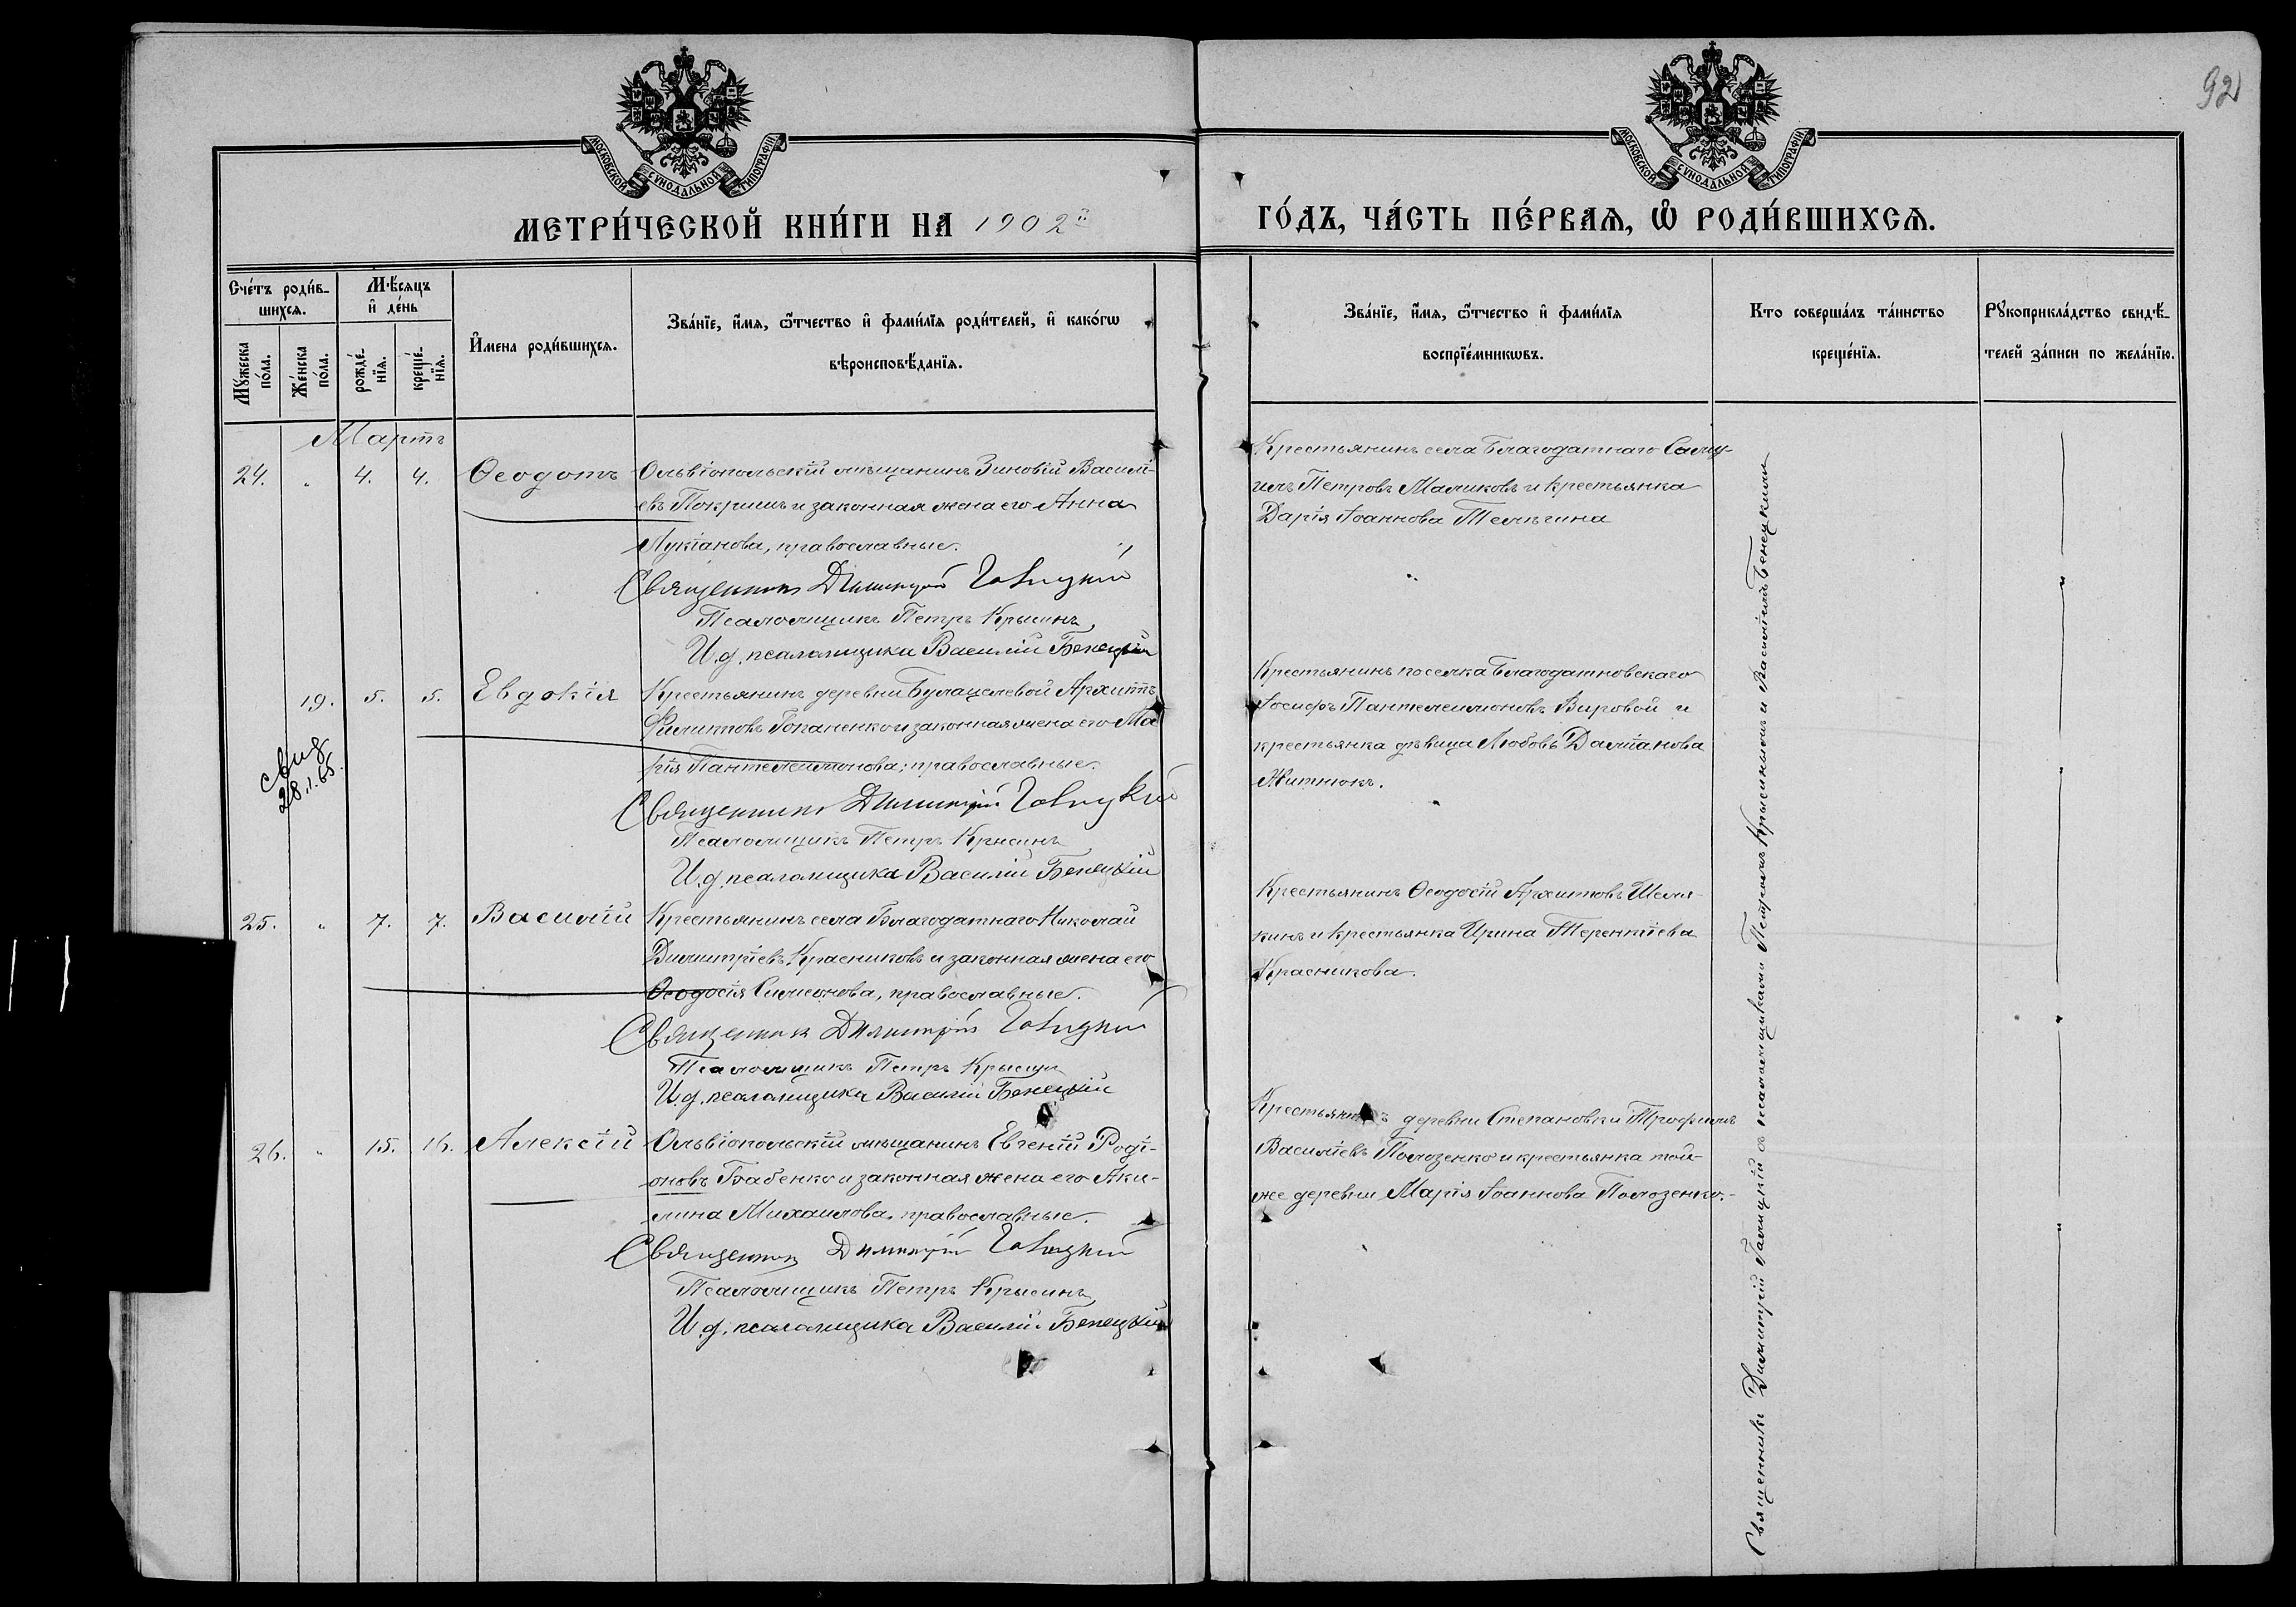 92
МОСКОВСКОЙ СѴНОДАЛЬНОЙ ТИПОГРАФІИ
МОСКОВСКОЙ СѴНОДАЛЬНОЙ ТИПОГРАФІИ
МЕТРИ́ЧЕСКОЙ КНИ́ГИ НА 1902й
ГО́ДЪ, ЧА́СТЬ ПЕ́РВАѦ, Ѽ РОДИ́ВШИХСѦ.
Сче́тъ роди́в-
шихсѧ.
Мꙋ́жеска по́ла.
Же́нска по́ла.
Мѣ́сяцъ
и҆ де́нь
рожде́-
нїѧ.
креще́-
нїѧ.
И҆́мена роди́вшихсѧ.
Зва́нїе, и҆́мѧ, ѻ҆́тчество и҆ фами́лїѧ роди́телей, и҆ како́гѡ
вѣроисповѣ́данїѧ.
Зва́нїе, и҆́мѧ, ѻ҆́тчество и҆ фами́лїѧ
воспрїе́мникѡвъ.
Кто соверша́лъ та́инство
креще́нїѧ.
Рꙋкоприкла́дство свидѣ́-
телей за́писи по жела́нїю.
Мартъ
24. " 4. 4. Ѳеодотъ
Ольвіопольскій мѣщанинъ Зиновій Василі-
евъ Покришъ и законная жена его Анна
Лукіанова, православные.
Священникъ Димитрій Галицкій
Псаломщикъ Петръ Крысинъ
И. д. псаломщика Василій Бенецкій
Крестьянинъ села Благодатнаго Саму-
илъ Петровъ Маликовъ и крестьянка
Дарія Іоаннова Телѣгина
19. 5. 5. Евдокія
Крестьянинъ деревни Булацелевой Архиппъ
Филиповъ Гопаненко и законная жена его Ма
рія Пантелеимонова; православные.
Священникъ Димитрій Галицкій
Псаломщикъ Петръ Крысинъ
И. д. псаломщика Василій Бенецкій
Крестьянинъ поселка Благодатновскаго
Іосифъ Пантелеимоновъ Вировой и
крестьянка дѣвица Любовь Даміанова
Житнюкъ.
свид
28.1.65.
25. " 7. 7. Василій
Крестьянинъ села Благодатнаго Николай
Димитріевъ Красниковъ и законная жена его
Ѳеодосія Симеонова, православные.
Священникъ Димитрій Галицкій
Псаломщикъ Петръ Крысинъ
И. д. псаломщика Василій Бенецкій
Крестьянинъ Ѳеодосій Архиповъ Шеля-
кинъ и крестьянка Ирина Терентіева
Красникова.
26. " 15. 16. Алексій
Ольвіопольскій мѣщанинъ Евгеній Роді-
оновъ Бабенко и законная жена его Аки-
лина Михаилова, православные.
Священникъ Димитрій Галицкій
Псаломщикъ Петръ Крысинъ
И. д. псаломщика Василій Бенецкій
Крестьянинъ деревни Степановки Трофимъ
Василіевъ Полозенко и крестьянка той-
же деревни Марія Іоаннова Полозенко.-
Священникъ Димитрій Галицкій съ псаломщиками Петромъ Крысинымъ и Василіемъ Бенецкимъ